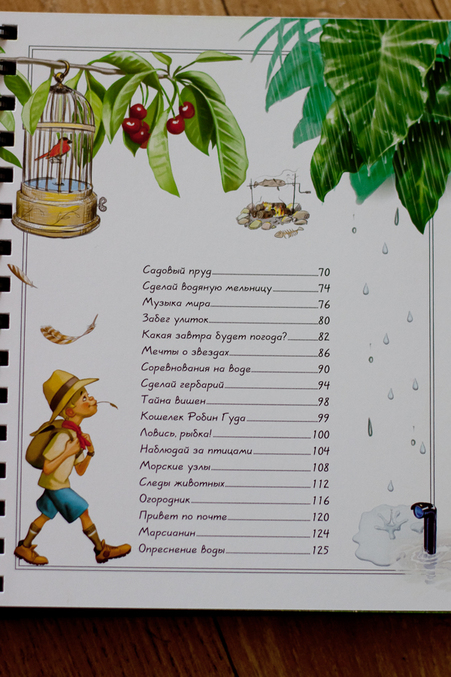 Садовый пруд 70
Сделай водяную мельницу 74
Музыка мира 76
Забег улиток 80
Какая завтра будет погода? 82
Мечты о звездах 86
Соревнования на воде 90
Сделай гербарий 94
Тайна вишен 98
Кошелек Робин Гуда 99
Ловись, рыбка! 100
Наблюдай за птицами 104
Морские узлы 108
Следы животных 112
Огородник 116
Привет по почте 120
Марсианин 124
Опреснение воды 125